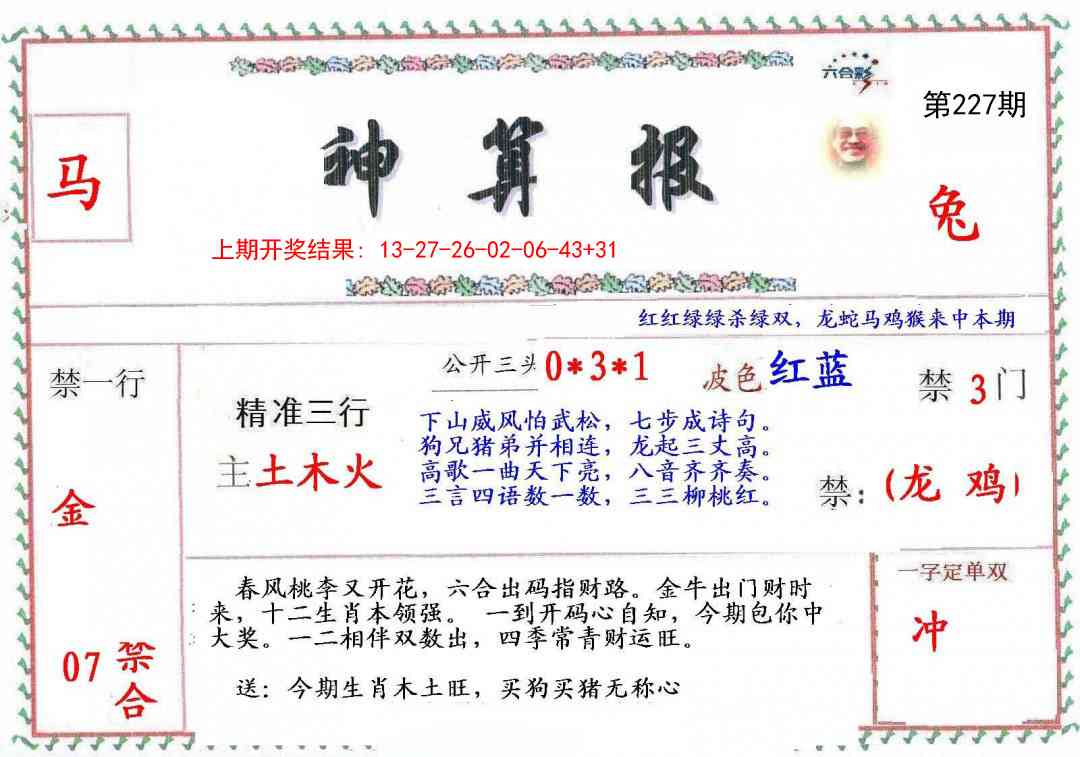 六合彩
第227期
神算报
马
兔
上期开奖结果：13-27-26-02-06-43+31
红红绿绿杀绿双，龙蛇马鸡猴来中本期
禁一行
金
07 禁合
精准三行
主土木火
公开三头 0*3*1
波色 红蓝
下山威风怕武松，七步成诗句。
狗兄猪弟并相连，龙起三丈高。
高歌一曲天下亮，八音齐齐奏。
三言四语数一数，三三柳桃红。
禁 3 门
禁：(龙 鸡)
春风桃李又开花，六合出码指财路。金牛出门财时
来，十二生肖本领强。 一到开码心自知，今期包你中
大奖。一二相伴双数出，四季常青财运旺。
送：今期生肖木土旺，买狗买猪无称心
一字定单双
冲